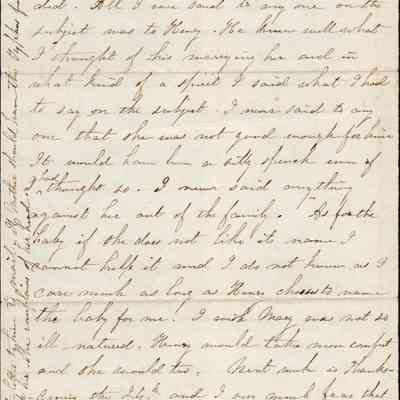 did. All I ever said to any one on the
subject was to Henry. He knew well what
I thought of his marrying her and in
what kind of a spirit I said what I had
to say on the subject. I never said to any
one that she was not good enough for him
It would have been a silly speech even if
I had thought so. I never said anything
against her out of the family. As for the
baby if she does not like its name I
cannot help it and I do not know as I
care much as long as Henry chooses to name
the baby for me. I wish Mary was not so
ill natured. Henry would take more comfort
and she would too. Next week is Thanks-
giving the 24th and I very much fear that